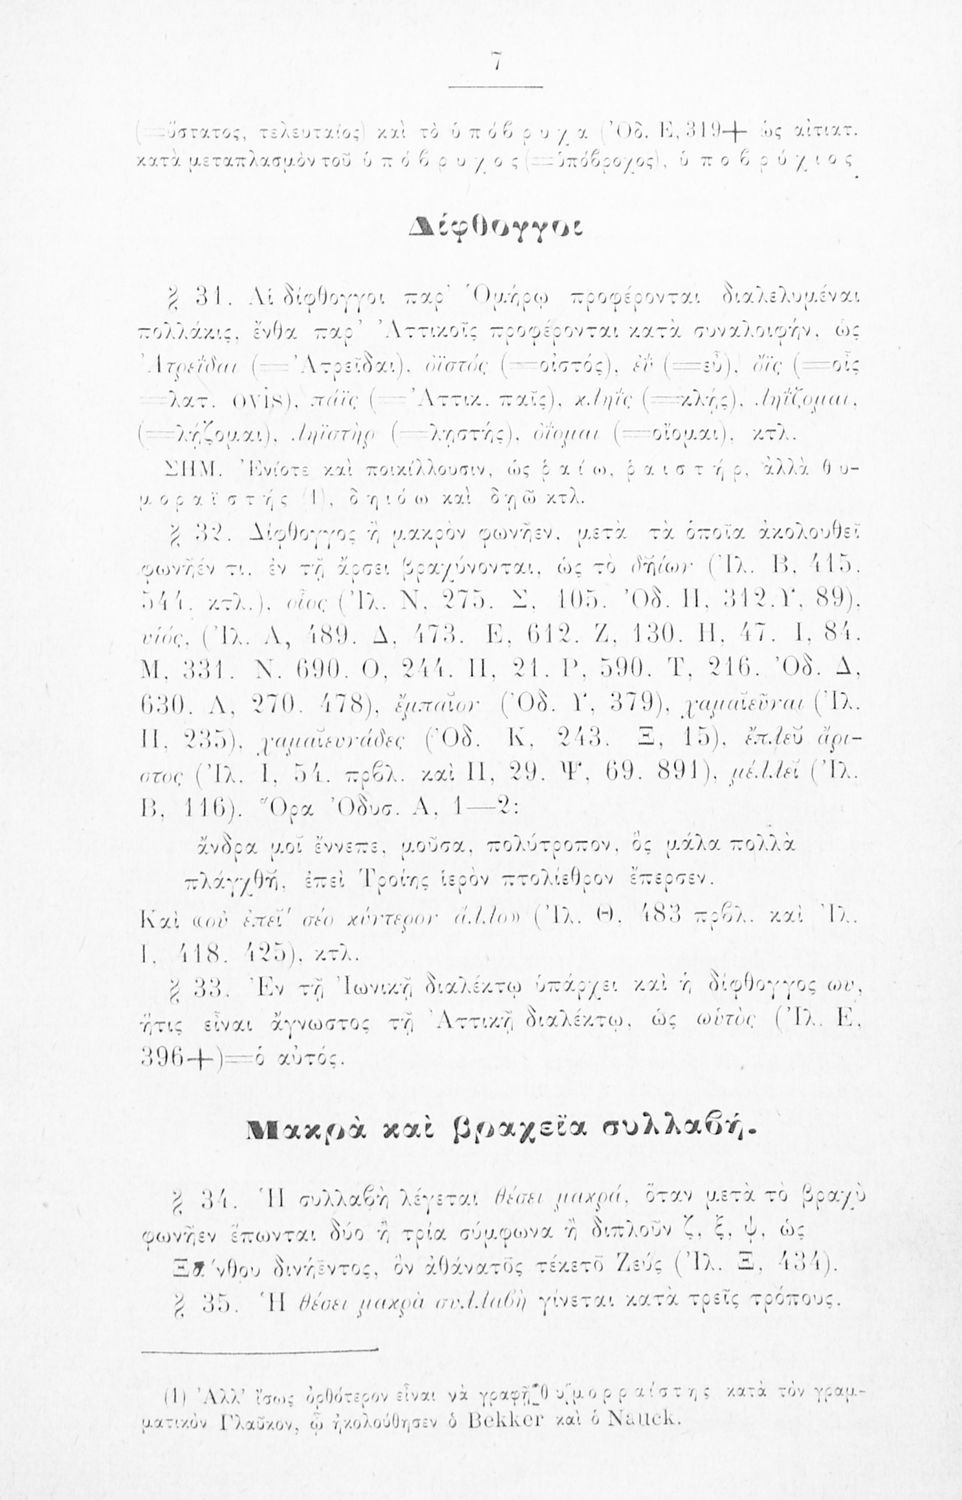 7
(=ὕστατος, τελευταῖος) καὶ τὸ ὑπόβρυχα (Ὀδ. Ε, 319+ ὡς αἰτιατ.
κατὰ μεταπλασμὸν τοῦ ὑπόβρυχος (=ὑπόβροχος), ὑποβρύχιος.
Δίφθογγοι
§ 31. Αἱ δίφθογγοι παρ' Ὁμήρῳ προφέρονται διαλελυμέναι
πολλάκις, ἔνθα παρ' Ἀττικοῖς προφέρονται κατὰ συναλοιφήν, ὡς
Ἀτρεΐδαι (=Ἀτρεῖδαι), ὀϊστός (=οἰστός), ἐΰ (=εὖ), ὄϊς (=οἶς
=λατ. ovis), πάϊς (=Ἀττικ. παῖς), κληΐς (=κλῄς), ληΐζομαι,
(=λῄζομαι), ληϊστὴρ (=λῃστής), ὀΐομαι (=οἴομαι), κτλ.
ΣΗΜ. Ἐνίοτε καὶ ποικίλλουσιν, ὡς ῥαίω, ῥαιστήρ, ἀλλὰ θυ-
μοραϊστής (1), δηιόω καὶ δῃῶ κτλ.
§ 32. Δίφθογγος ἢ μακρὸν φωνῆεν, μετὰ τὰ ὁποῖα ἀκολουθεῖ
φωνῆέν τι, ἐν τῇ ἄρσει βραχύνονται, ὡς τὸ δηΐων (Ἰλ. Β, 415.
544. κτλ.), οἷος (Ἰλ. Ν, 275. Σ, 105. Ὀδ. Η, 312. Υ, 89),
υἱός, (Ἰλ. Α, 489. Δ, 473. Ε, 612. Ζ, 130. Η, 47. Ι, 84.
Μ, 331. Ν. 690. Ο, 244. Π, 21. Ρ, 590. Τ, 216. Ὀδ. Δ,
630. Λ, 270. 478), ἔμπαιον (Ὀδ. Υ, 379), χαμαιεῦναι (Ἰλ.
Π, 235), χαμαιευνάδες (Ὀδ. Κ, 243. Ξ, 15), ἔπλευ ἄρι-
στος (Ἰλ. Ι, 54. πρβλ. καὶ Π, 29. Ψ, 69. 891), μέλλει (Ἰλ.
Β, 116). Ὅρα Ὀδυσ. Α, 1—2:
ἄνδρα μοι ἔννεπε, μοῦσα, πολύτροπον, ὃς μάλα πολλὰ
πλάγχθη, ἐπεὶ Τροίης ἱερὸν πτολίεθρον ἔπερσεν.
Καὶ «οὐ ἐπεὶ σέο κύντερον ἄλλο» (Ἰλ. Θ, 483 πρβλ. καὶ Ἰλ.
Ι, 418. 425), κτλ.
§ 33. Ἐν τῇ Ἰωνικῇ διαλέκτῳ ὑπάρχει καὶ ἡ δίφθογγος ωυ,
ἥτις εἶναι ἄγνωστος τῇ Ἀττικῇ διαλέκτῳ, ὡς ωὑτὸς (Ἰλ. Ε,
396+)=ὁ αὐτός.
Μακρὰ καὶ βραχεῖα συλλαβή.
§ 34. Ἡ συλλαβὴ λέγεται θέσει μακρά, ὅταν μετὰ τὸ βραχὺ
φωνῆεν ἕπωνται δύο ἢ τρία σύμφωνα ἢ διπλοῦν ζ, ξ, ψ, ὡς
Ξάνθου δινήεντος, ὃν ἀθάνατος τέκετο Ζεύς (Ἰλ. Ξ, 434).
§ 35. Ἡ θέσει μακρὰ συλλαβὴ γίνεται κατὰ τρεῖς τρόπους.
(1) Ἀλλ' ἴσως ὀρθότερον εἶναι νὰ γραφῇ θυμορραίστης κατὰ τὸν γραμ-
ματικὸν Γλαῦκον, ᾧ ἠκολούθησεν ὁ Bekker καὶ ὁ Nauck.